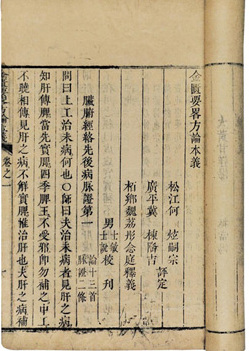 金匱要畧方論本義
松江何炫嗣宗
廣平冀棟隆吉 評定
柏鄉魏荔彤念庭釋義
男 士敏 士說 校刊
臟腑經絡先後病脉證第一 論十三首 脉證二條
問曰上工治未病何也〇師曰夫治未病者見肝之病
知肝傳脾當先實脾四季脾王不受邪卽勿補之中工
不曉相傳見肝之病不解實脾惟治肝也夫肝之病補
卷之一